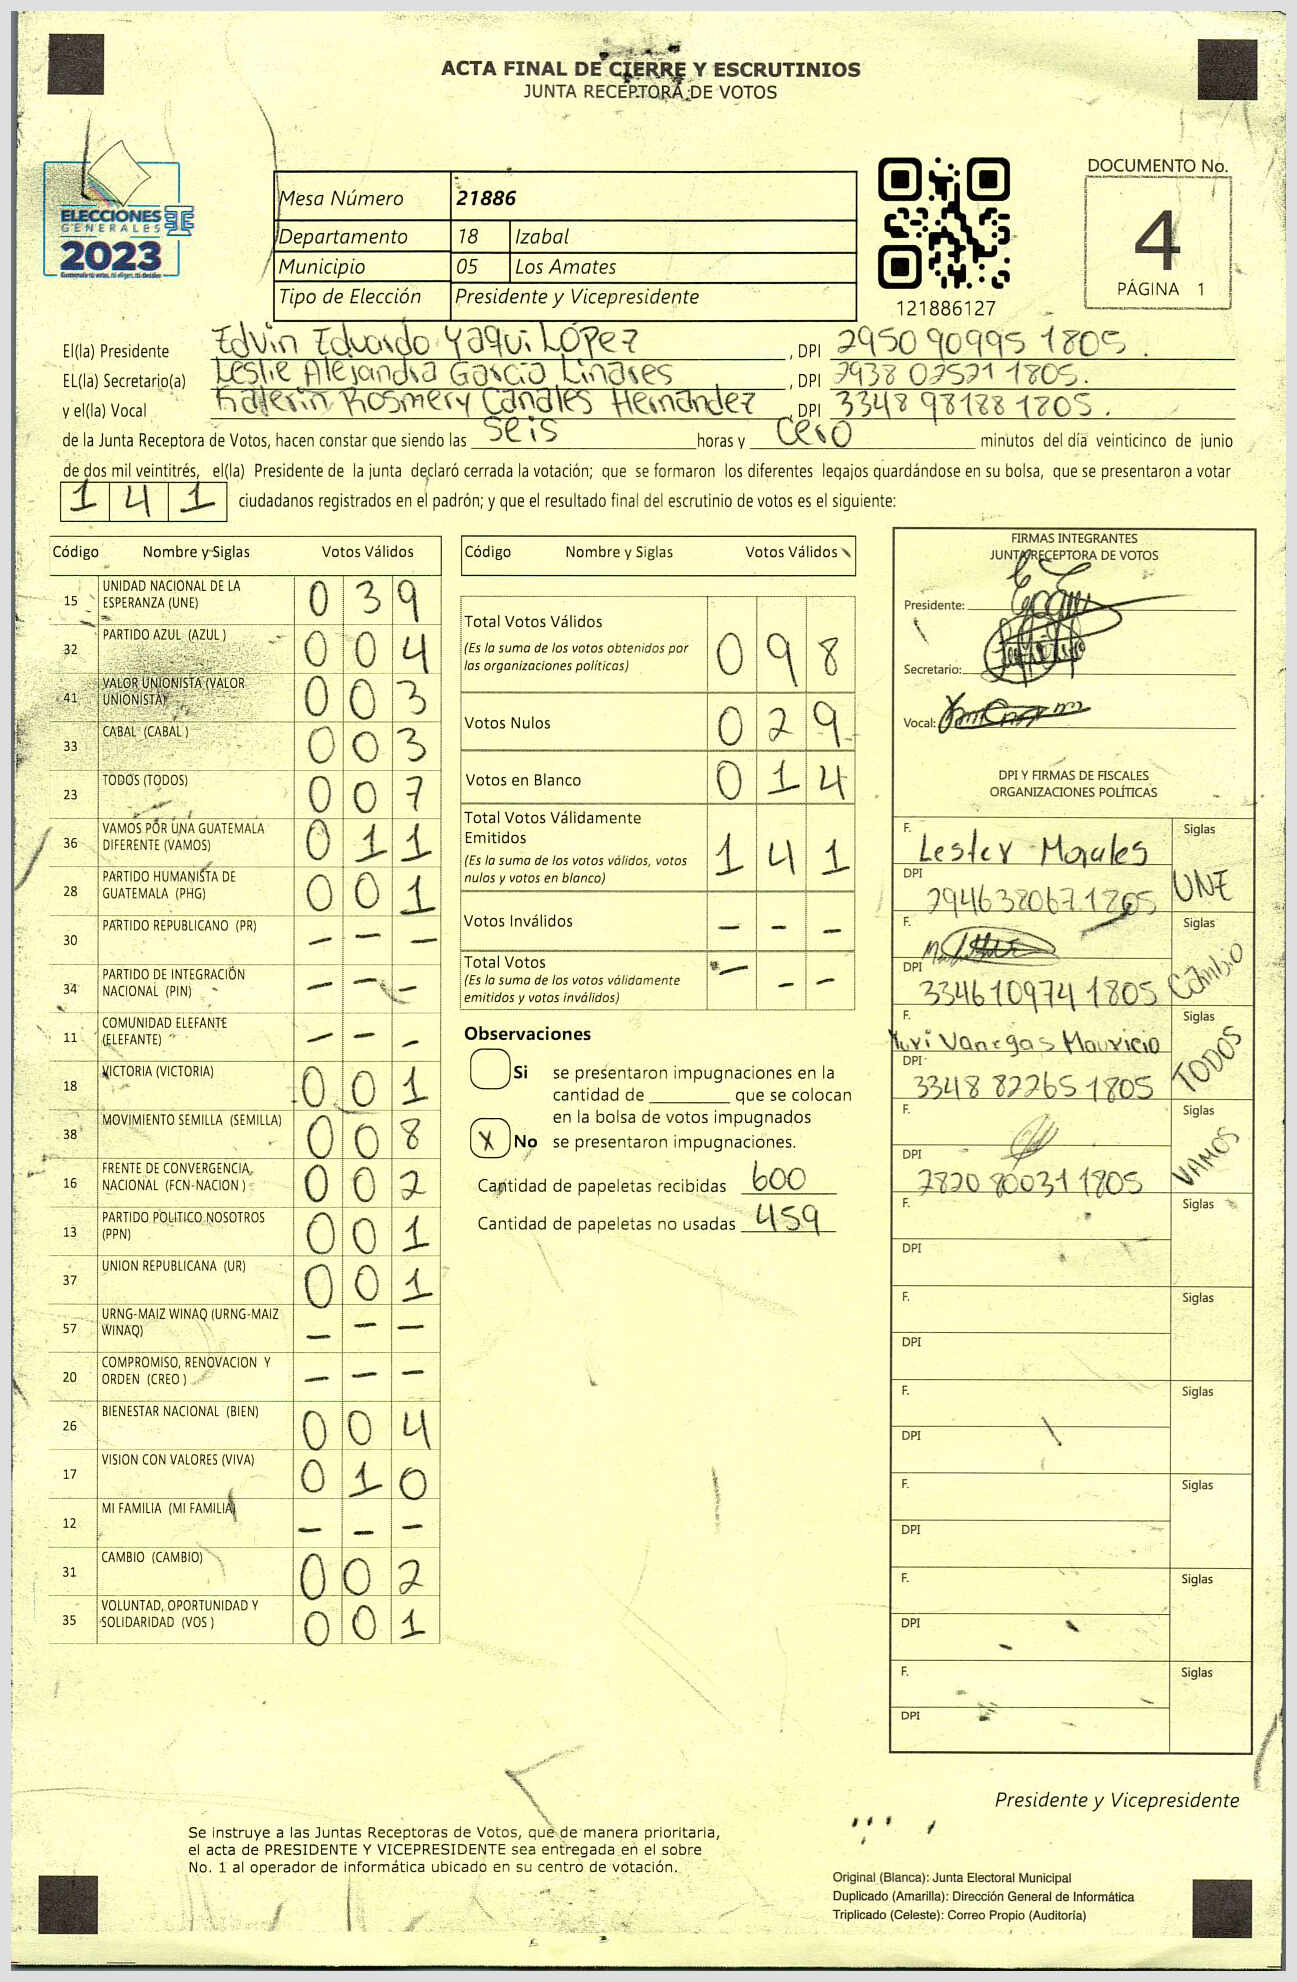 ACTA FINAL DE CIERRE Y ESCRUTINIOS
JUNTA RECEPTORA DE VOTOS
ELECCIONES
GENERALES
2023
Mesa Número 21886
Departamento 18 Izabal
Municipio 05 Los Amates
Tipo de Elección Presidente y Vicepresidente
121886127
DOCUMENTO No.
4
PÁGINA 1
El(la) Presidente Edvin Eduardo Yaqui López , DPI 2950 90995 1805.
EL(la) Secretario(a) Leslie Alejandra García Linares , DPI 2938 02521 1805.
y el(la) Vocal Katerin Rosmery Canales Hernández , DPI 3348 98188 1805.
de la Junta Receptora de Votos, hacen constar que siendo las seis horas y cero minutos del día veinticinco de junio
de dos mil veintitrés, el(la) Presidente de la junta declaró cerrada la votación; que se formaron los diferentes legajos guardándose en su bolsa, que se presentaron a votar
1 4 1 ciudadanos registrados en el padrón; y que el resultado final del escrutinio de votos es el siguiente:
Código Nombre y Siglas Votos Válidos
15 UNIDAD NACIONAL DE LA ESPERANZA (UNE) 0 3 9
32 PARTIDO AZUL (AZUL ) 0 0 4
41 VALOR UNIONISTA (VALOR UNIONISTA) 0 0 3
33 CABAL (CABAL ) 0 0 3
23 TODOS (TODOS) 0 0 7
36 VAMOS POR UNA GUATEMALA DIFERENTE (VAMOS) 0 1 1
28 PARTIDO HUMANISTA DE GUATEMALA (PHG) 0 0 1
30 PARTIDO REPUBLICANO (PR) – – –
34 PARTIDO DE INTEGRACIÓN NACIONAL (PIN) – – –
11 COMUNIDAD ELEFANTE (ELEFANTE) – – –
18 VICTORIA (VICTORIA) 0 0 1
38 MOVIMIENTO SEMILLA (SEMILLA) 0 0 8
16 FRENTE DE CONVERGENCIA NACIONAL (FCN-NACION ) 0 0 2
13 PARTIDO POLITICO NOSOTROS (PPN) 0 0 1
37 UNION REPUBLICANA (UR) 0 0 1
57 URNG-MAIZ WINAQ (URNG-MAIZ WINAQ) – – –
20 COMPROMISO, RENOVACION Y ORDEN (CREO ) – – –
26 BIENESTAR NACIONAL (BIEN) 0 0 4
17 VISION CON VALORES (VIVA) 0 1 0
12 MI FAMILIA (MI FAMILIA) – – –
31 CAMBIO (CAMBIO) 0 0 2
35 VOLUNTAD, OPORTUNIDAD Y SOLIDARIDAD (VOS ) 0 0 1
Código Nombre y Siglas Votos Válidos
Total Votos Válidos 0 9 8
(Es la suma de los votos obtenidos por
las organizaciones políticas)
Votos Nulos 0 2 9
Votos en Blanco 0 1 4
Total Votos Válidamente
Emitidos 1 4 1
(Es la suma de los votos válidos, votos
nulos y votos en blanco)
Votos Inválidos – – –
Total Votos – – –
(Es la suma de los votos válidamente
emitidos y votos inválidos)
Observaciones
Si se presentaron impugnaciones en la
cantidad de ________ que se colocan
en la bolsa de votos impugnados
X No se presentaron impugnaciones.
Cantidad de papeletas recibidas 600
Cantidad de papeletas no usadas 459
FIRMAS INTEGRANTES
JUNTA RECEPTORA DE VOTOS
Presidente:
Secretario:
Vocal:
DPI Y FIRMAS DE FISCALES
ORGANIZACIONES POLÍTICAS
F. Lester Morales Siglas UNE
DPI 294638067 1805
F. Siglas Cambio
DPI 334610974 1805
F. Yuri Vanegas Mauricio Siglas TODOS
DPI 3348 82265 1805
F. Siglas VAMOS
DPI 2820 80031 1805
F. Siglas
DPI
F. Siglas
DPI
F. Siglas
DPI
F. Siglas
DPI
F. Siglas
DPI
F. Siglas
DPI
Presidente y Vicepresidente
Se instruye a las Juntas Receptoras de Votos, que de manera prioritaria,
el acta de PRESIDENTE Y VICEPRESIDENTE sea entregada en el sobre
No. 1 al operador de informática ubicado en su centro de votación.
Original (Blanca): Junta Electoral Municipal
Duplicado (Amarilla): Dirección General de Informática
Triplicado (Celeste): Correo Propio (Auditoría)